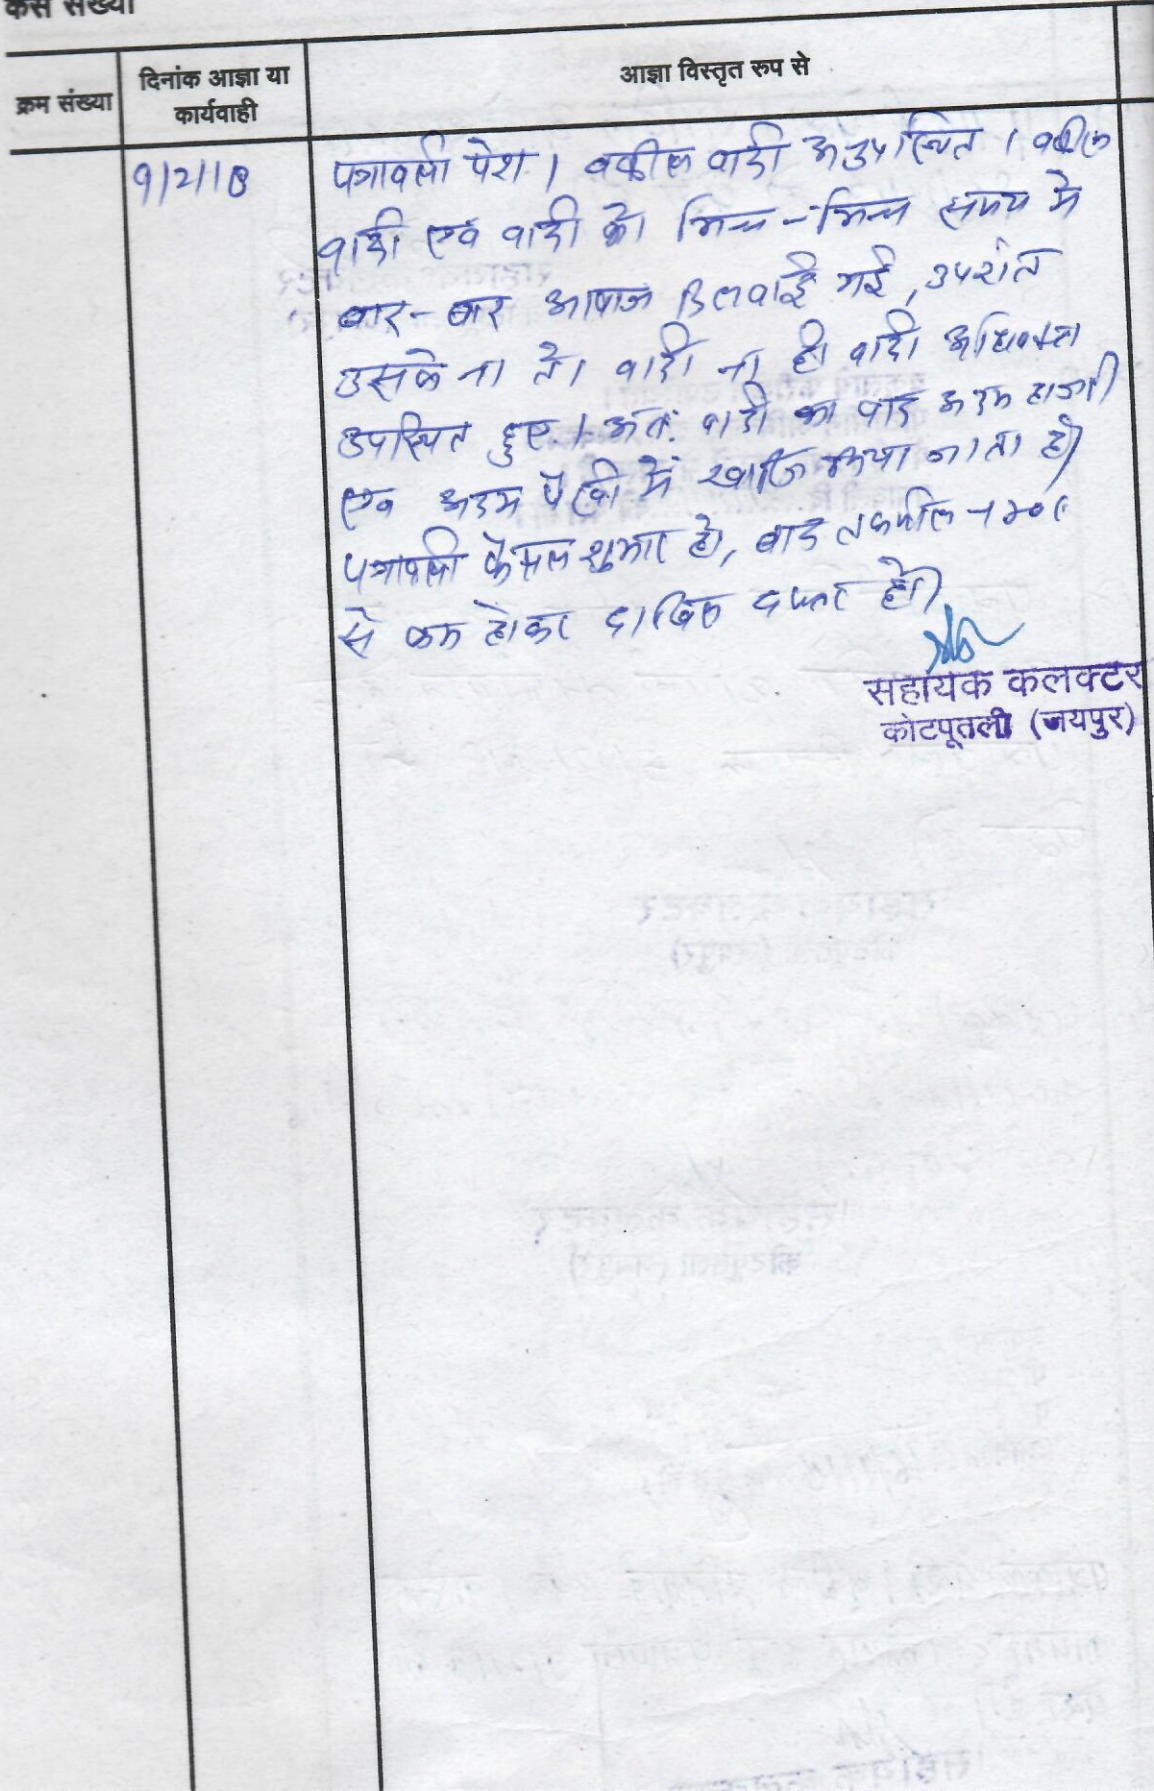 केस संख्या
क्रम संख्या
दिनांक आज्ञा या
कार्यवाही
आज्ञा विस्तृत रुप से
9/2/18
पत्रावली पेश। वकील वादी अनुपस्थित। वकील
वादी एवं वादी को भिन्न-भिन्न समय मे
बार-बार आवाज दिलवाई गई, उपरांत
उसके ना तो वादी ना ही वादी अधिवक्ता
उपस्थित हुए। अतः वादी का वाद अदम हाजरी
एवं अदम पैरवी में खारिज किया जाता है।
पत्रावली फैसल शुमार हो, बाद तकमील नम्बर
से कम होकर दाखिल दफ्तर हो।
सहायक कलक्टर
कोटपूतली (जयपुर)